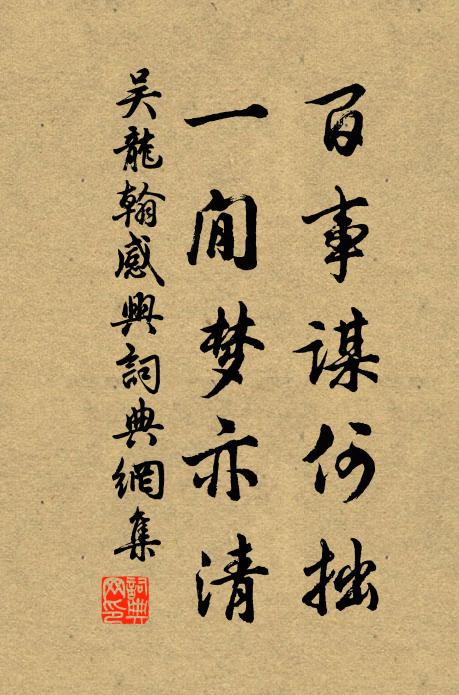 百事謀何拙
一閒梦亦清
吴龍翰感興詞典網集
詞典网印